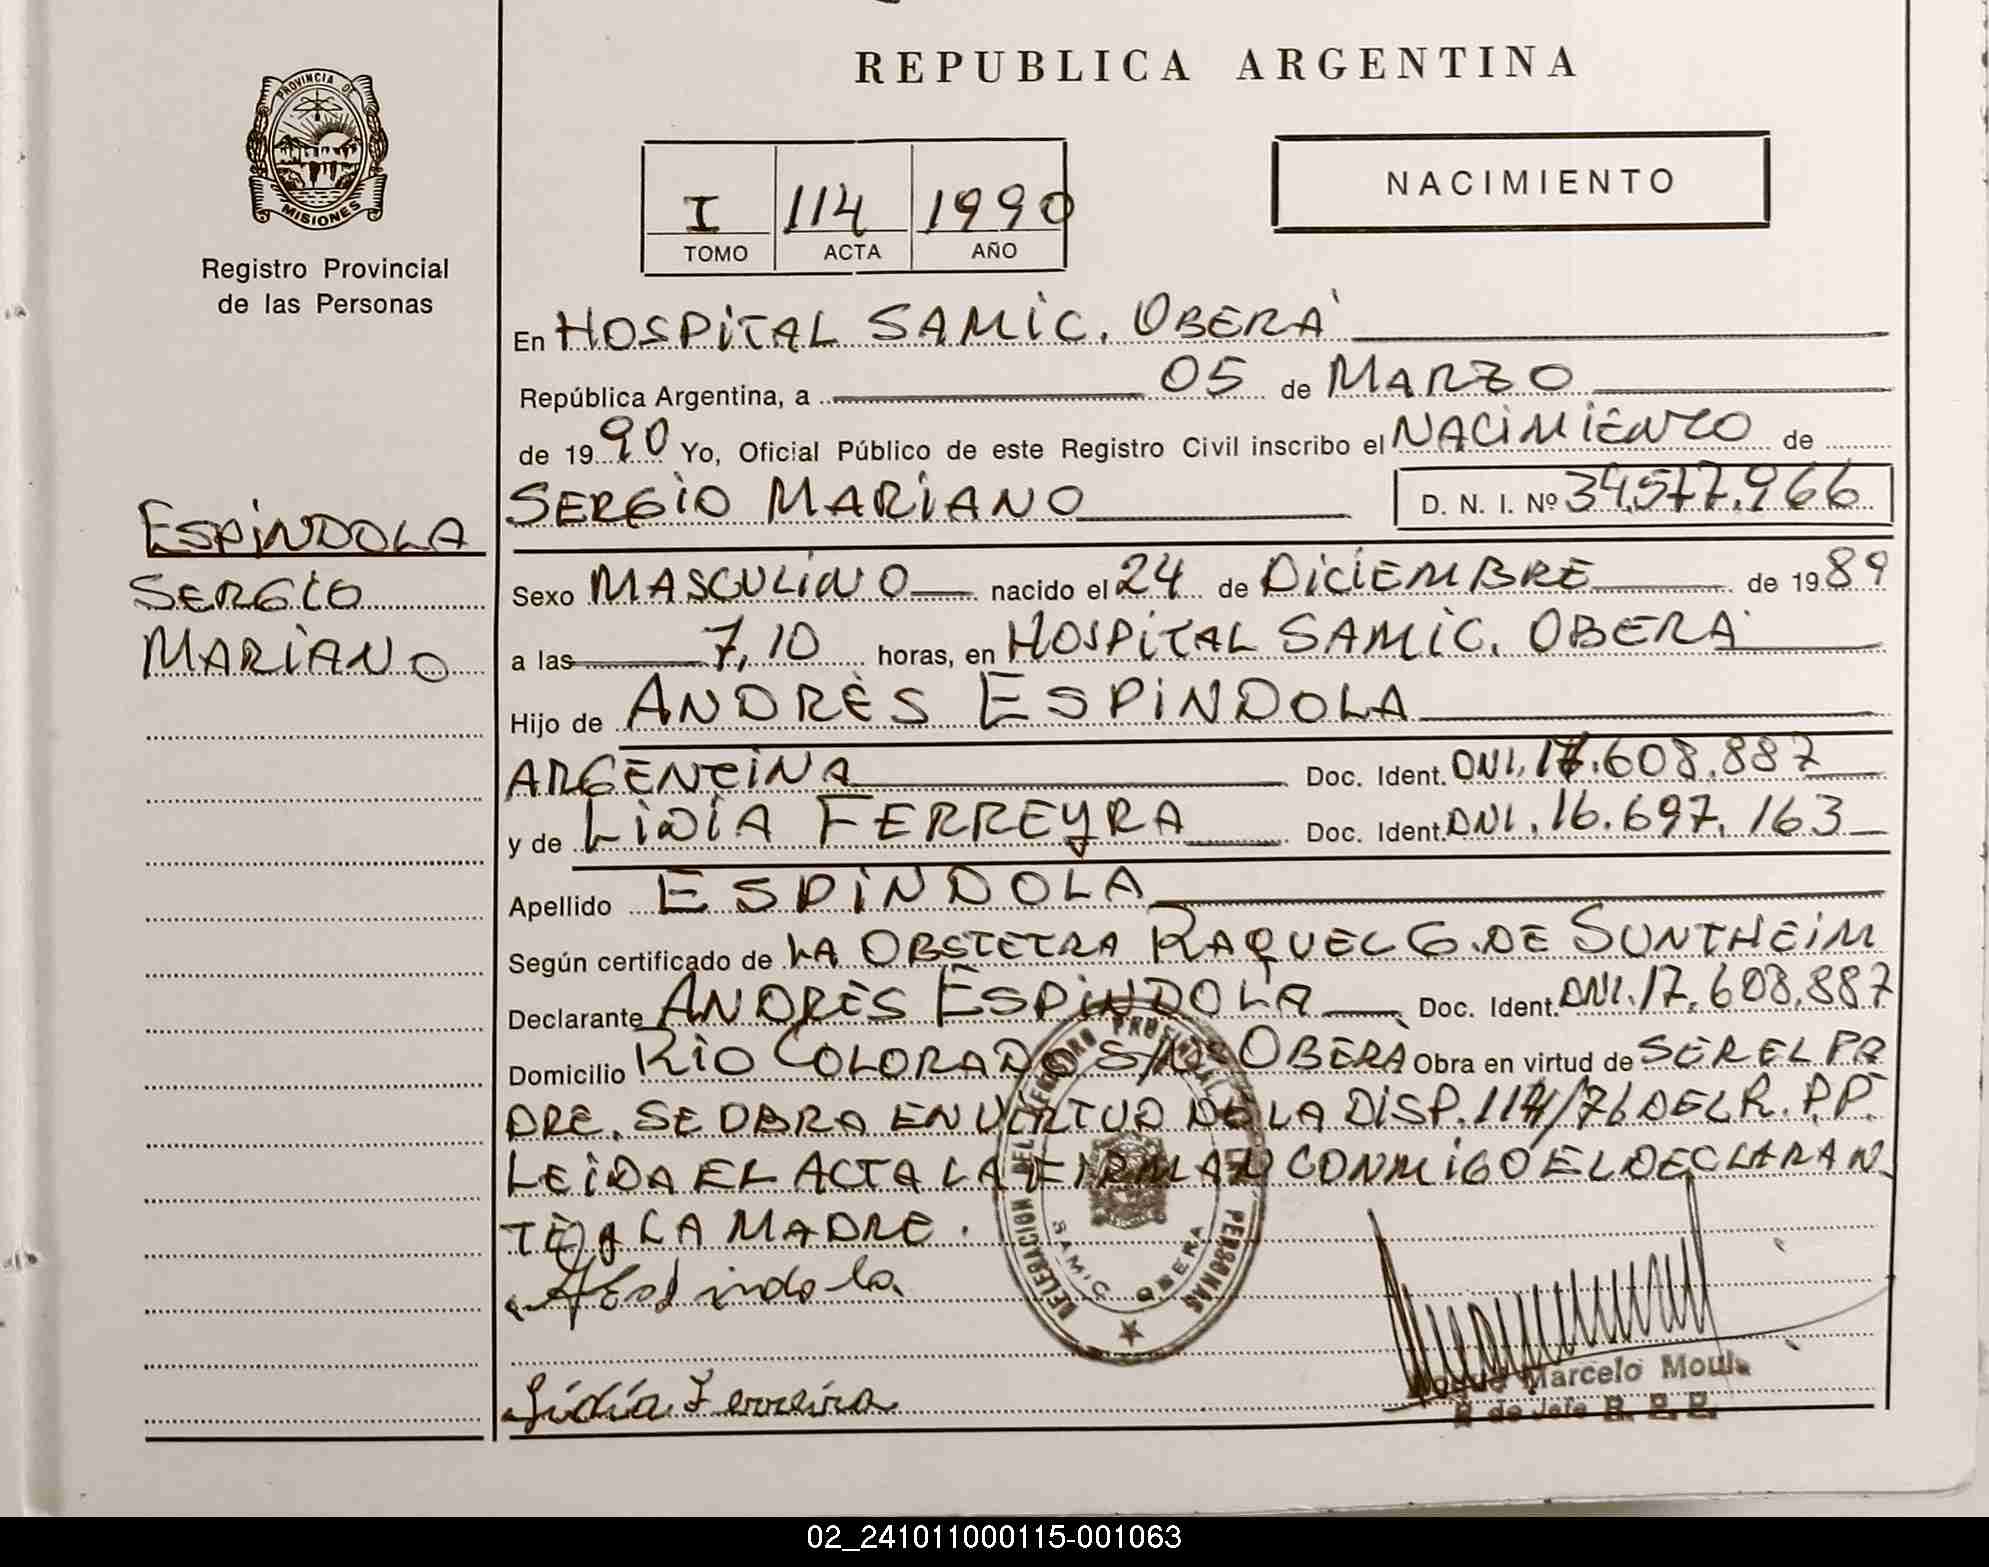 REPUBLICA ARGENTINA
PROVINCIA DE
MISIONES
Registro Provincial
de las Personas
I 114 1990
TOMO ACTA AÑO
NACIMIENTO
En HOSPITAL SAMIC. OBERÁ
República Argentina, a 05 de MARZO
de 1990 Yo, Oficial Público de este Registro Civil inscribo el NACIMIENTO de
SERGIO MARIANO D. N. I. Nº 34.577.966
ESPINDOLA
SERGIO
MARIANO
Sexo MASCULINO nacido el 24 de DICIEMBRE de 1989
a las 7,10 horas, en HOSPITAL SAMIC. OBERÁ
Hijo de ANDRÉS ESPINDOLA
ARGENTINA Doc. Ident. DNI. 17.608.887
y de LIDIA FERREYRA Doc. Ident. DNI. 16.697.163
Apellido ESPINDOLA
Según certificado de LA OBSTETRA RAQUEL G. DE SUNTHEIM
Declarante ANDRÉS ESPINDOLA Doc. Ident. DNI. 17.608.887
Domicilio RIO COLORADO S/Nº OBERÁ Obra en virtud de SER EL PA
DRE. SE OBRA EN VIRTUD DE LA DISP. 114/76 DEL R. P. P.
LEIDA EL ACTA LA FIRMAN CONMIGO EL DECLARAN
TE y LA MADRE.
AEspindola
Lidia Ferreira
DELEGACION DEL REGISTRO PROVINCIAL DE LAS PERSONAS
SAMIC OBERA
Roque Marcelo
de Jefe R. P. P.
02_241011000115-001063